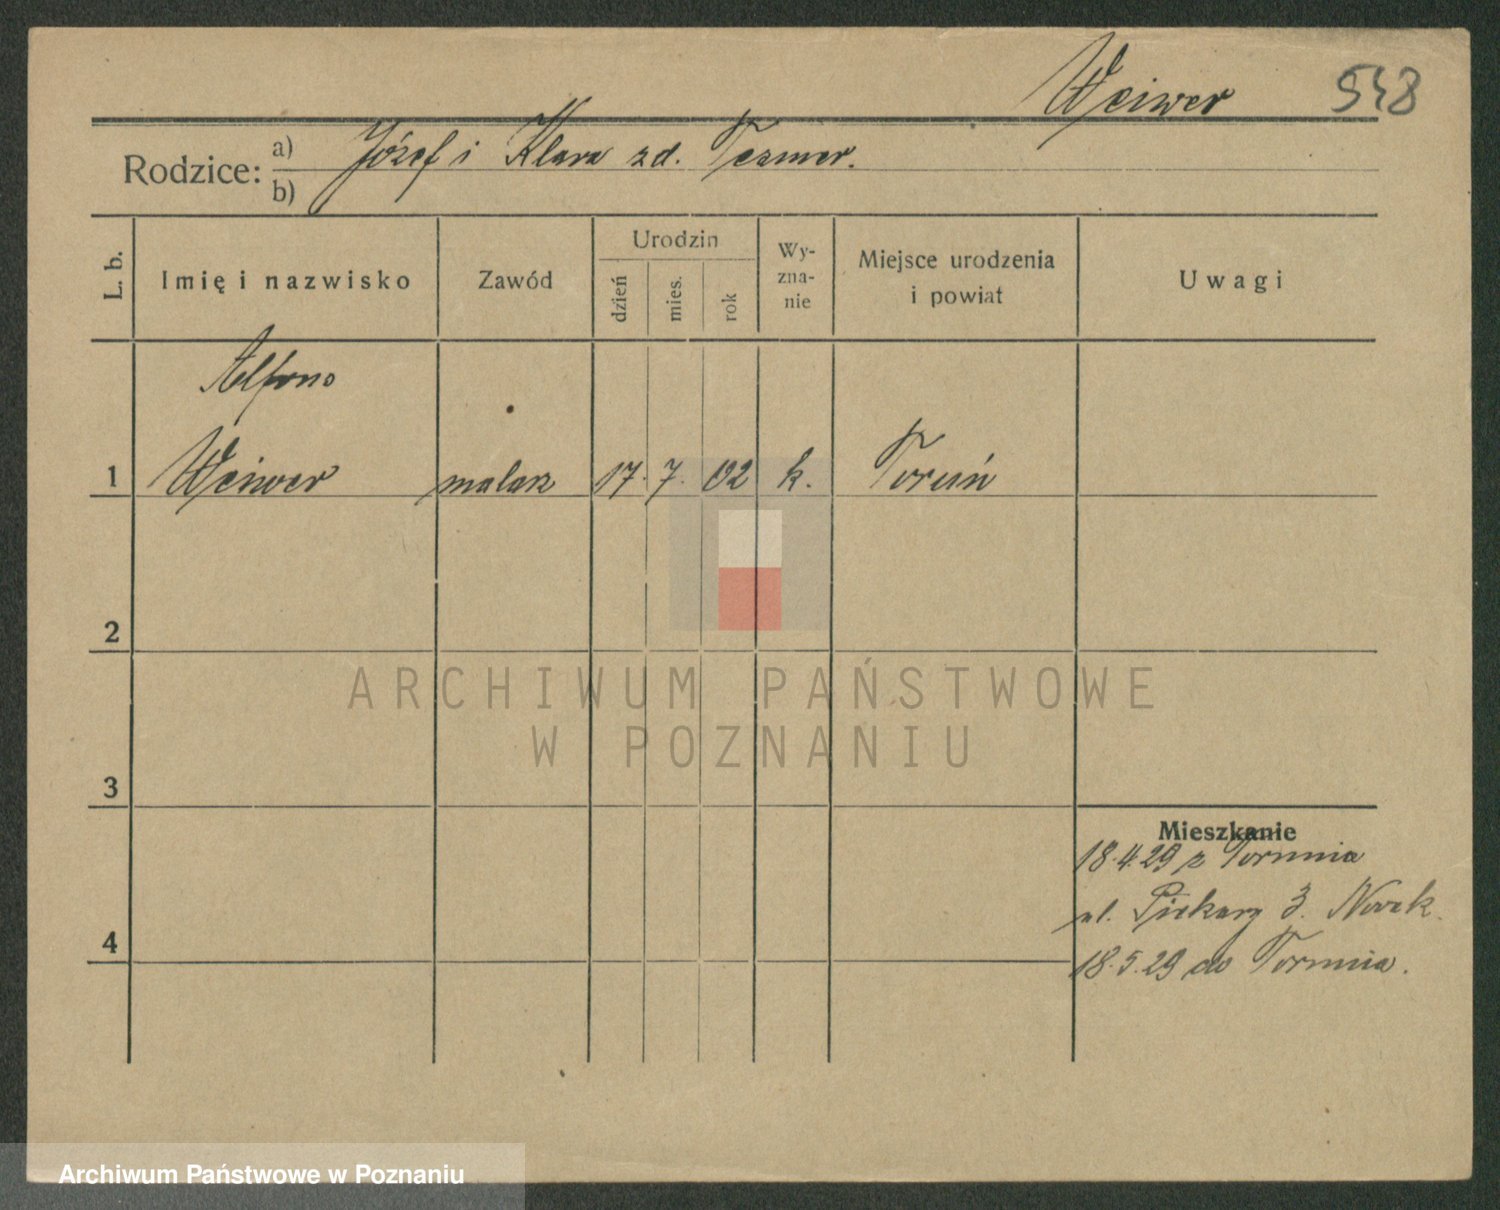 Weiwer 548
Rodzice: a) Józef i Klara zd. Tesmer.
b)
L. b. Imię i nazwisko Zawód Urodzin dzień mies. rok Wyznanie Miejsce urodzenia i powiat Uwagi
Alfons
1 Weiwer malarz 17. 7. 02 k. Toruń
2
ARCHIWUM PAŃSTWOWE
W POZNANIU
3
Mieszkanie
18.4.29 z Torunia
ul. Piekary 3. Nowak.
4
18.5.29 do Torunia.
Archiwum Państwowe w Poznaniu